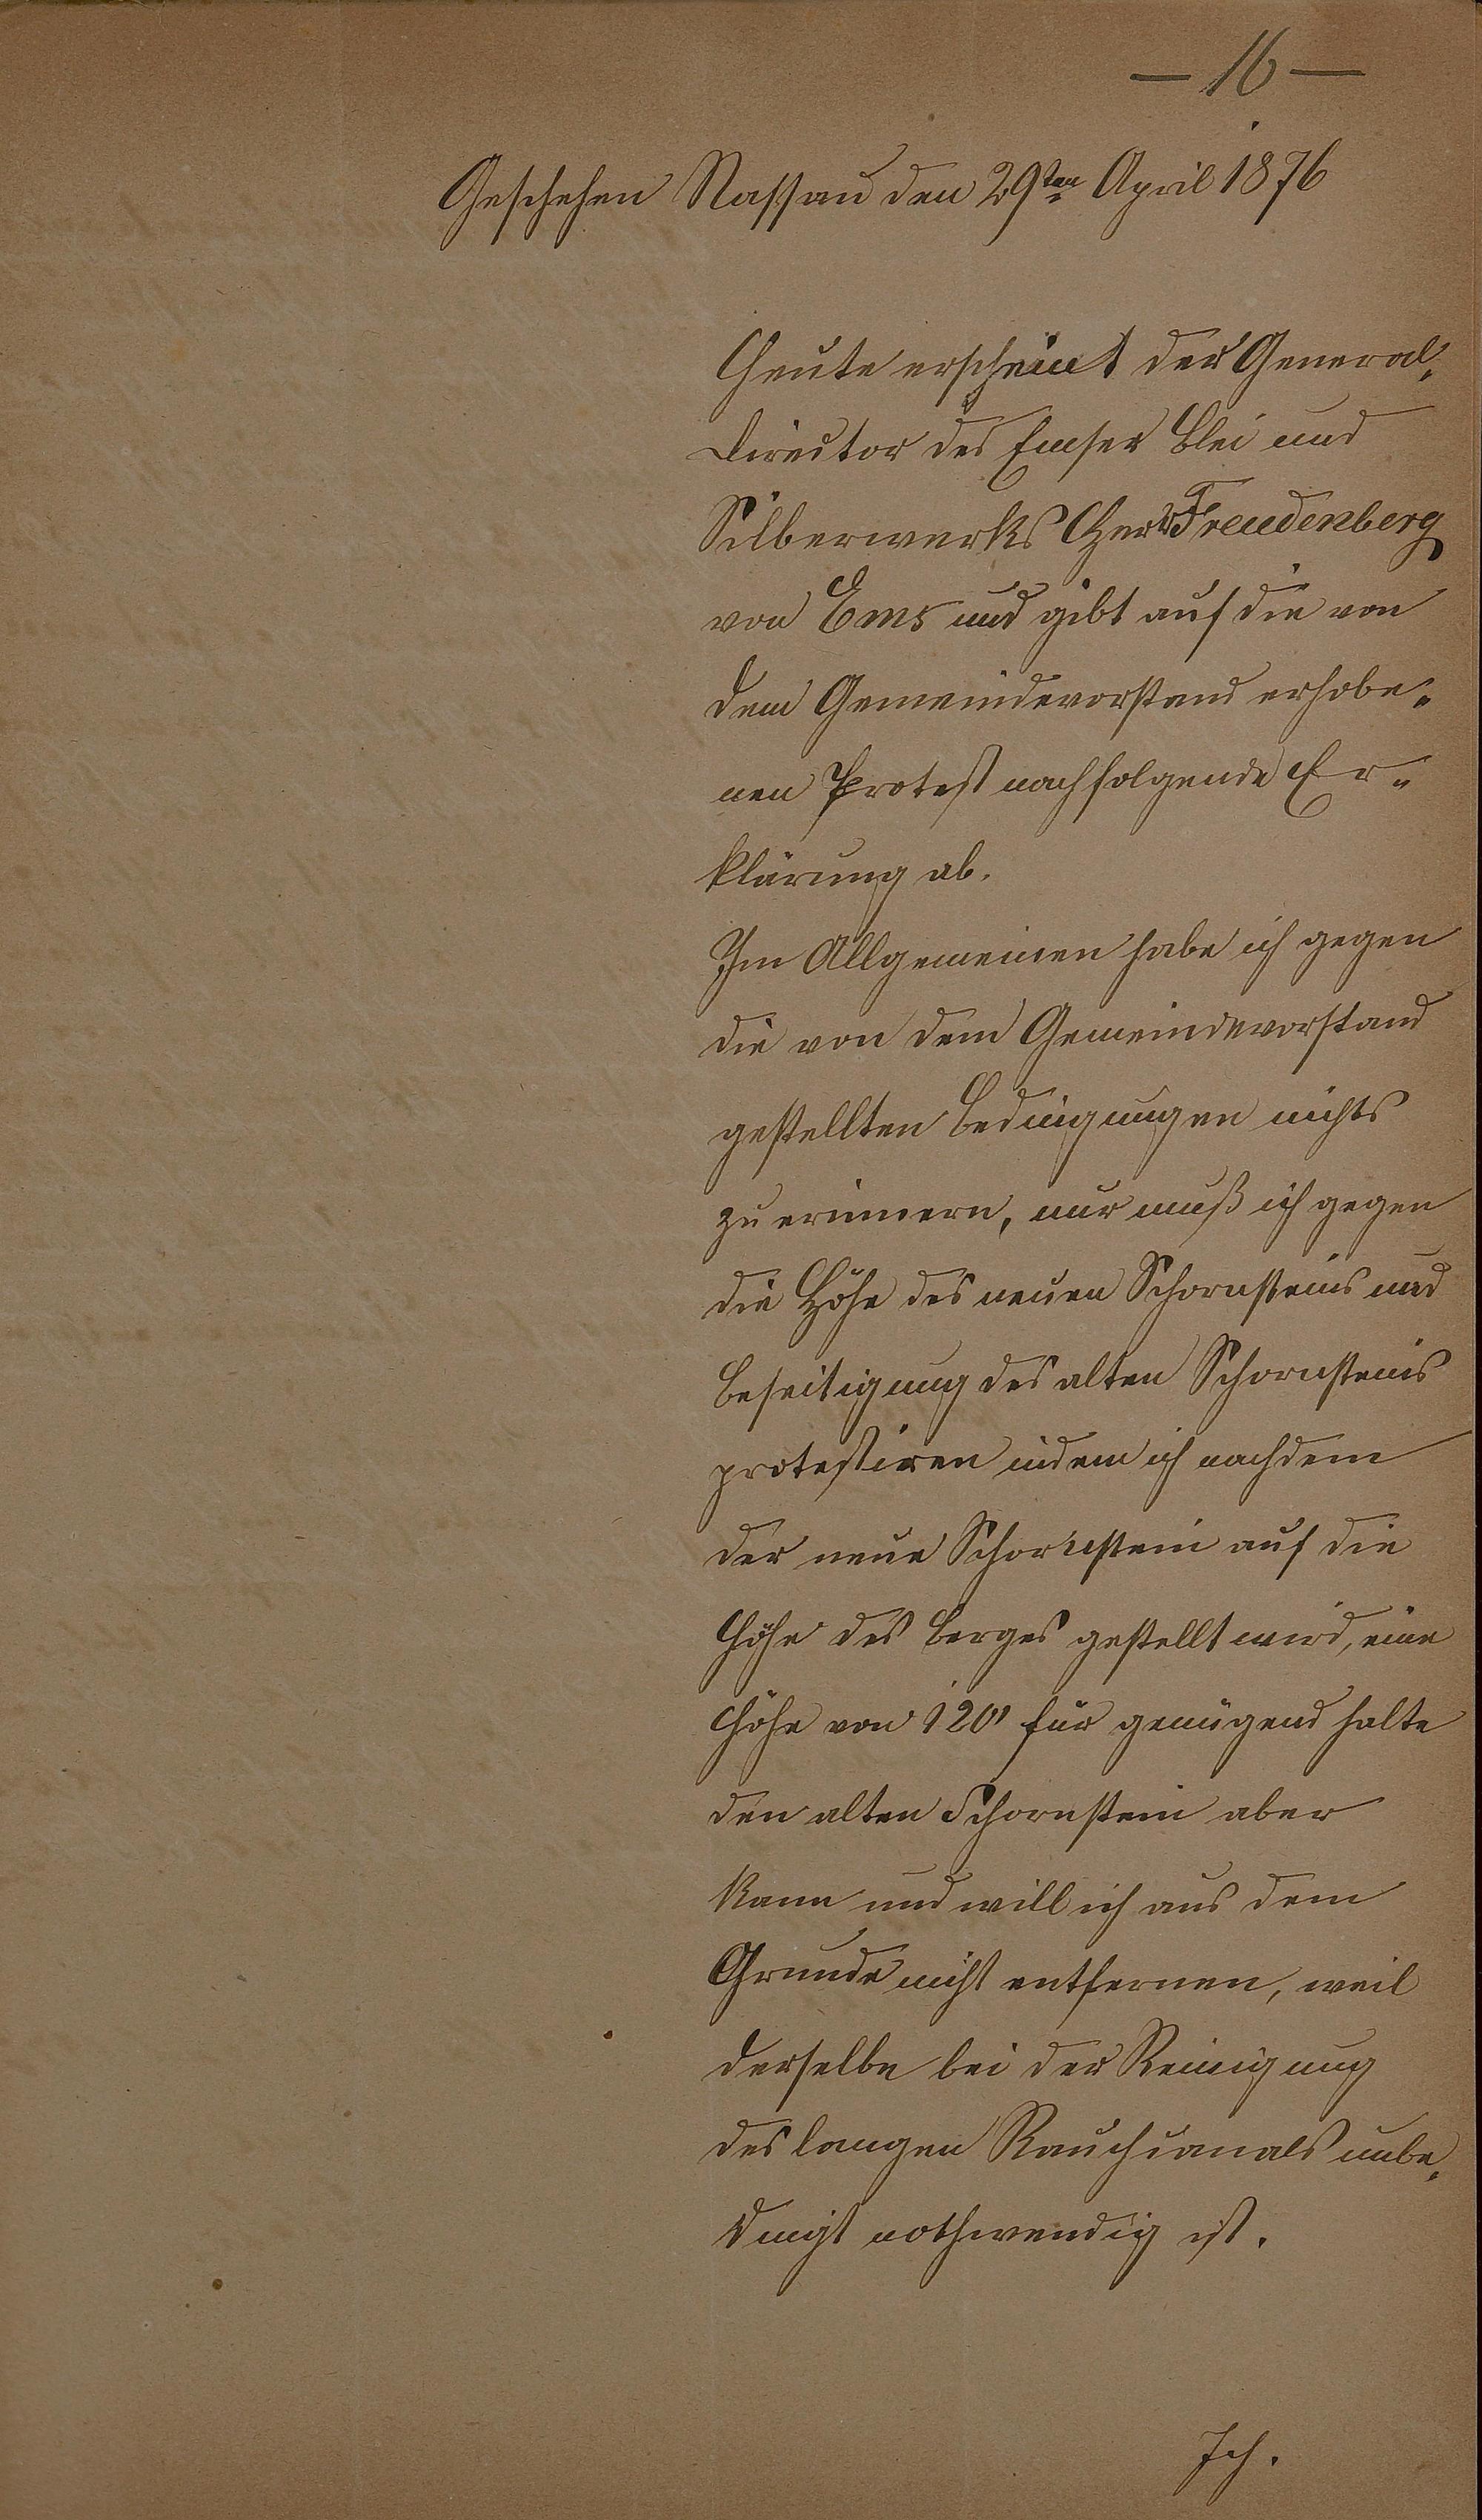 — 16 —
Geschehen Nassau den 29ten April 1876
Heute erscheint der General„
director des Emser Blei und
Silberwerks Herr Freudenberg
von Ems und gibt auf die von
dem Gemeindevorstand erhobe„
nen Protest nachfolgende Er„
klärung ab.
Im Allgemeinen habe ich gegen
die von dem Gemeindevorstand
gestellten Bedingungen nichts
zu erinnern, nur muß ich gegen
die Höhe des neuen Schornsteins und
Beseitigung des alten Schornsteins
protestiren indem ich nachdem
der neue Schornstein auf die
Höhe des Berges gestellt wird, eine
Höhe von 120' für genügend halte
den alten Schornstein aber
kann und will ich aus dem
Grunde nicht entfernen, weil
derselbe bei der Reinigung
des langen Rauchcanals unbe„
dingt nothwendig ist.
Ich.